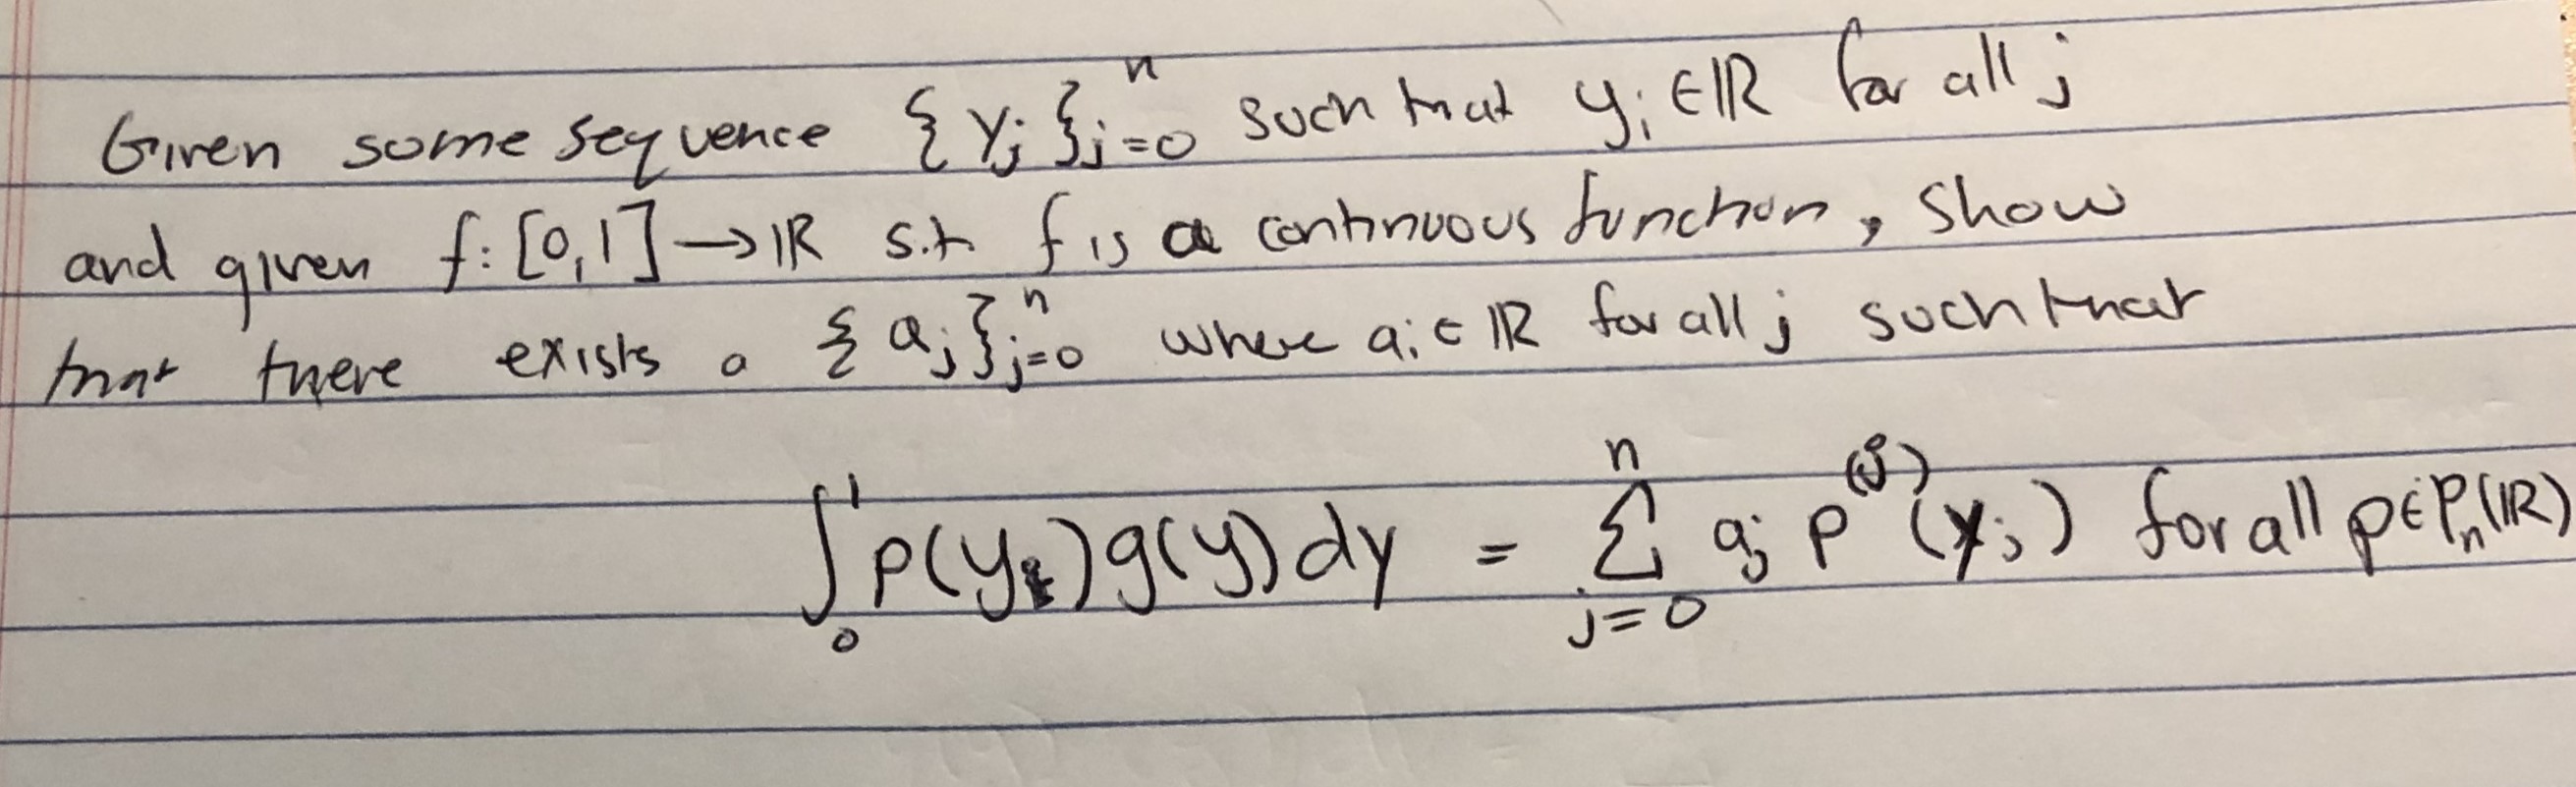 Given some sequence {y_j}_{j=0}^n such that y_j ∈ ℝ for all j
and given f: [0,1] → ℝ s.t. f is a continuous function, show
that there exists a {a_j}_{j=0}^n where a_j ∈ ℝ for all j such that
∫_0^1 p(y)g(y)dy = ∑_{j=0}^n a_j p^{(j)}(y_j) for all p∈P_n(ℝ)